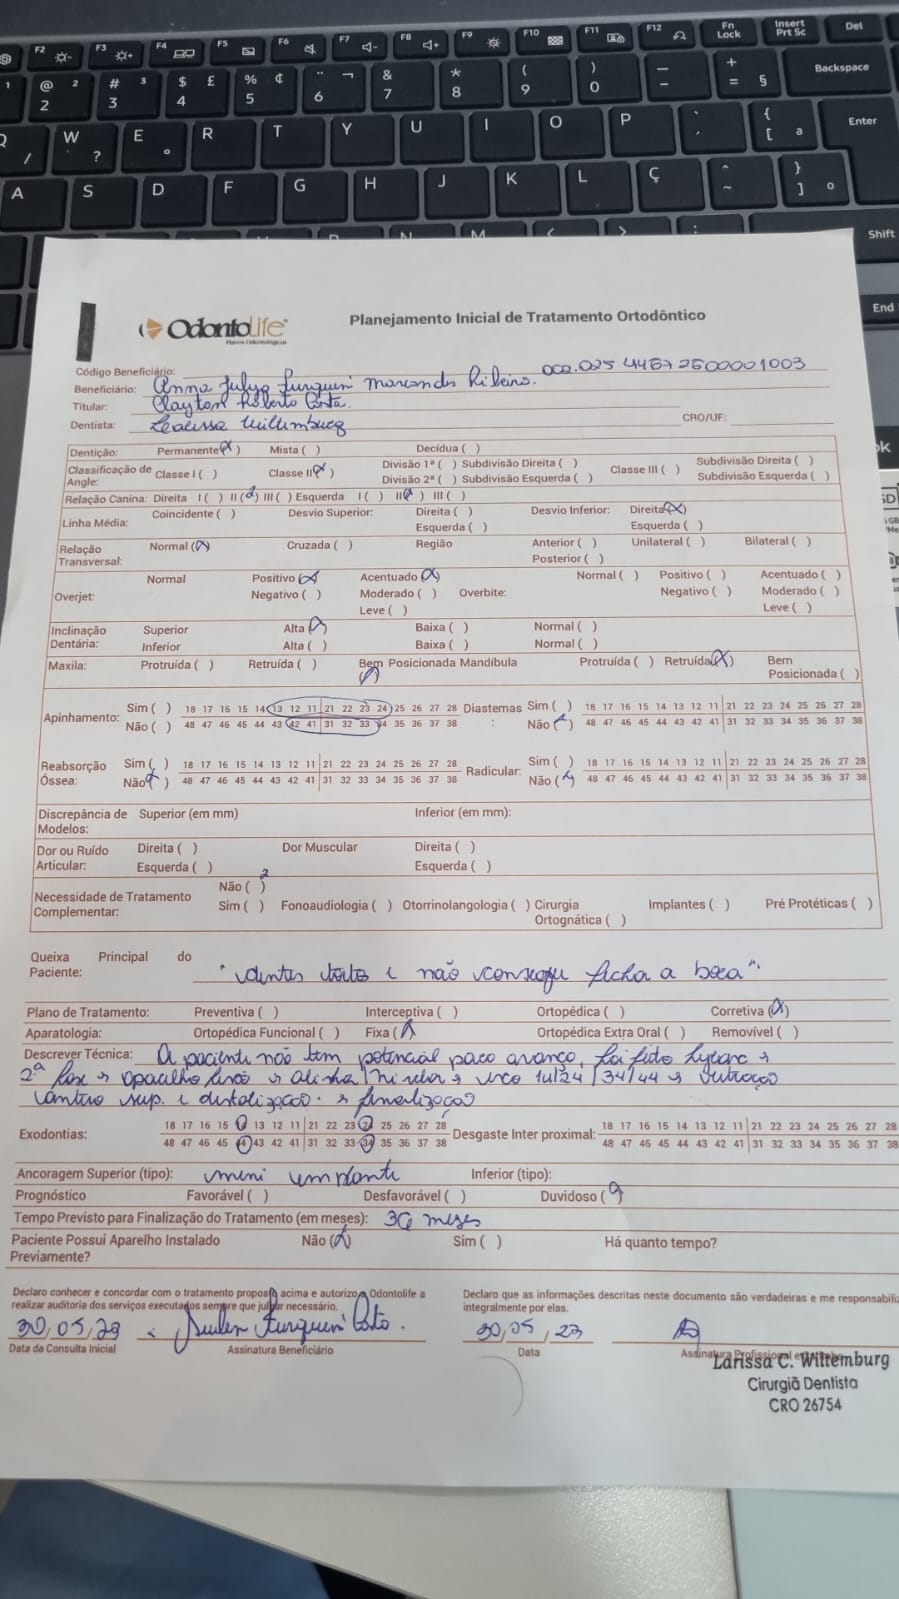 F2 F3 F4 F5 F6 F7 F8 F9 F10 F11 F12 Fn Lock Insert Prt Sc Del
1 @ 2 2 # 3 3 $ 4 £ % 5 ¢ ¨ 6 ¬ & 7 * 8 ( 9 ) 0 — – + = § Backspace
Q / W ? E ° R T Y U I O P ` ´ { [ ª Enter
A S D F G H J K L Ç ^ ~ } ] º
N M < > : Shift
End
OdontoLife
Planos Odontológicos
Planejamento Inicial de Tratamento Ortodôntico
Código Beneficiário: 002.025 4467 2600001003
Beneficiário: Anna Julya Furquim Marcondes Ribeiro.
Titular: Clayton Roberto Costa.
Dentista: Larissa Wiltemburg CRO/UF:
Dentição: Permanente (x) Mista ( ) Decídua ( )
Classificação de Angle: Classe I ( ) Classe II (x) Divisão 1ª ( ) Subdivisão Direita ( ) Classe III ( ) Subdivisão Direita ( )
Divisão 2ª ( ) Subdivisão Esquerda ( ) Subdivisão Esquerda ( )
Relação Canina: Direita I ( ) II (x) III ( ) Esquerda I ( ) II (x) III ( )
Linha Média: Coincidente ( ) Desvio Superior: Direita ( ) Desvio Inferior: Direita (x)
Esquerda ( ) Esquerda ( )
Relação Transversal: Normal (x) Cruzada ( ) Região Anterior ( ) Unilateral ( ) Bilateral ( )
Posterior ( )
Overjet: Normal Positivo (x) Acentuado (x) Overbite: Normal ( ) Positivo ( ) Acentuado ( )
Negativo ( ) Moderado ( ) Negativo ( ) Moderado ( )
Leve ( ) Leve ( )
Inclinação Dentária: Superior Alta (x) Baixa ( ) Normal ( )
Inferior Alta ( ) Baixa ( ) Normal ( )
Maxila: Protruída ( ) Retruída ( ) Bem Posicionada (x) Mandíbula Protruída ( ) Retruída (x) Bem Posicionada ( )
Apinhamento: Sim ( ) 18 17 16 15 14 13 12 11 21 22 23 24 25 26 27 28 Diastemas : Sim ( ) 18 17 16 15 14 13 12 11 21 22 23 24 25 26 27 28
Não ( ) 48 47 46 45 44 43 42 41 31 32 33 34 35 36 37 38 Não (x) 48 47 46 45 44 43 42 41 31 32 33 34 35 36 37 38
Reabsorção Óssea: Sim ( ) 18 17 16 15 14 13 12 11 21 22 23 24 25 26 27 28 Radicular: Sim ( ) 18 17 16 15 14 13 12 11 21 22 23 24 25 26 27 28
Não (x) 48 47 46 45 44 43 42 41 31 32 33 34 35 36 37 38 Não (x) 48 47 46 45 44 43 42 41 31 32 33 34 35 36 37 38
Discrepância de Modelos: Superior (em mm) Inferior (em mm):
Dor ou Ruído Articular: Direita ( ) Dor Muscular Direita ( )
Esquerda ( ) Esquerda ( )
Necessidade de Tratamento Complementar: Não ( )
Sim ( ) Fonoaudiologia ( ) Otorrinolangologia ( ) Cirurgia Ortognática ( ) Implantes ( ) Pré Protéticas ( )
Queixa Principal do Paciente: "dentes torto e não consegue fecha a boca".
Plano de Tratamento: Preventiva ( ) Interceptiva ( ) Ortopédica ( ) Corretiva (x)
Aparatologia: Ortopédica Funcional ( ) Fixa (x) Ortopédica Extra Oral ( ) Removível ( )
Descrever Técnica: A paciente não tem potencial para avanço, foi feito
2ª fase → aparelho fixo → alinha/nivelar → exo 14/24/34/44 →
sup. e distalização. → finalização
Exodontias: 18 17 16 15 14 13 12 11 21 22 23 24 25 26 27 28 Desgaste Inter proximal: 18 17 16 15 14 13 12 11 21 22 23 24 25 26 27 28
48 47 46 45 44 43 42 41 31 32 33 34 35 36 37 38 48 47 46 45 44 43 42 41 31 32 33 34 35 36 37 38
Ancoragem Superior (tipo): mini implante Inferior (tipo):
Prognóstico Favorável ( ) Desfavorável ( ) Duvidoso (x)
Tempo Previsto para Finalização do Tratamento (em meses): 36 meses
Paciente Possui Aparelho Instalado Previamente? Não (x) Sim ( ) Há quanto tempo?
Declaro conhecer e concordar com o tratamento proposto acima e autorizo a Odontolife a
realizar auditoria dos serviços executados sempre que julgar necessário.
Declaro que as informações descritas neste documento são verdadeiras e me responsabili
integralmente por elas.
30/05/23 Suelen Furquim Costa. 30/05/23
Data da Consulta Inicial Assinatura Beneficiário Data Assinatura Profissional
Larissa C. Wiltemburg
Cirurgiã Dentista
CRO 26754